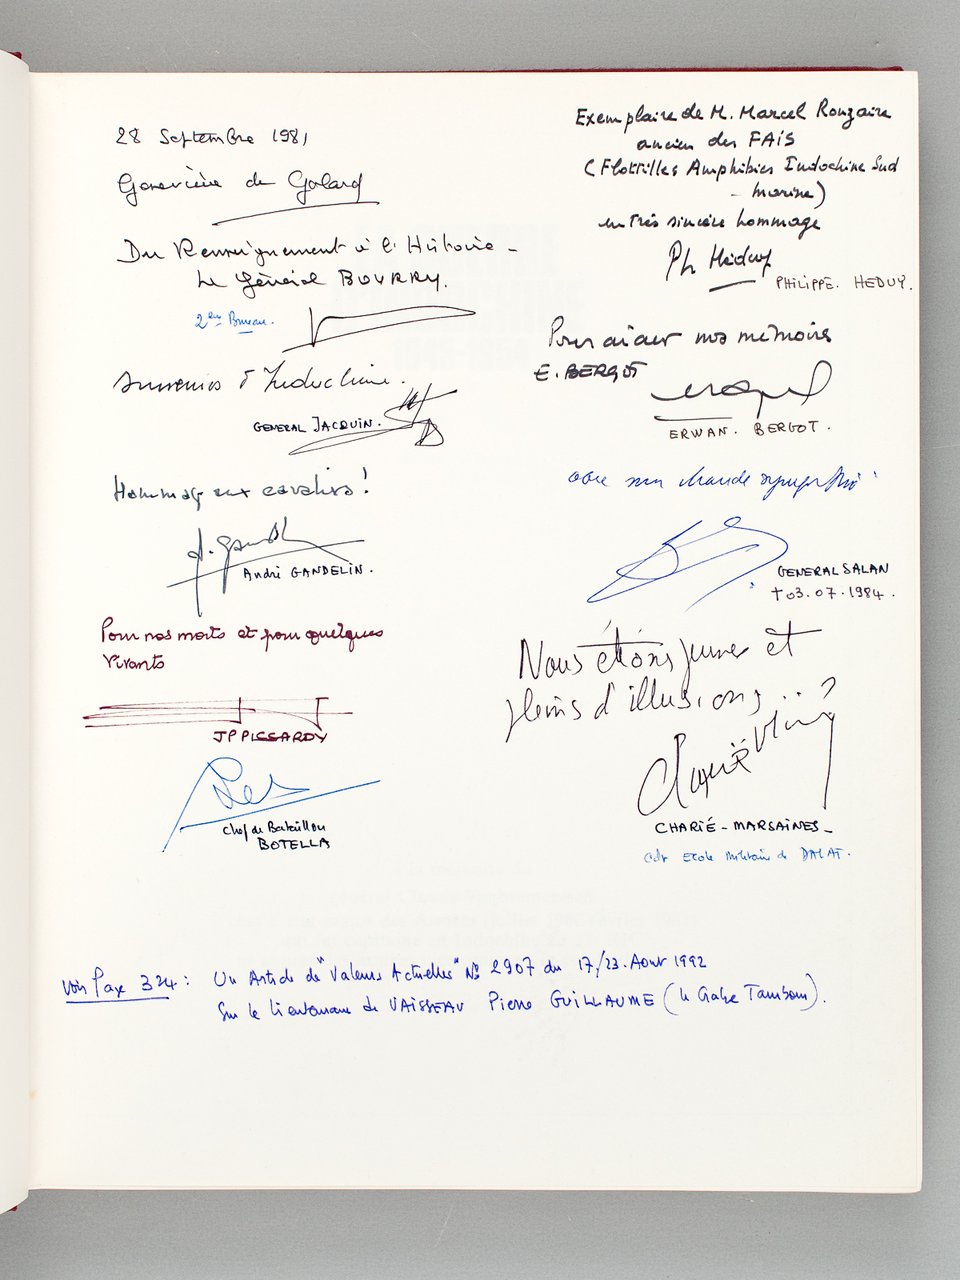 28 Septembre 1981
Geneviève de Galard
Du Renseignement à l'Histoire -
Le Général BOURRY.
2ème Bureau.
Souvenirs d'Indochine.
GENERAL JACQUIN.
Hommage aux cavaliers !
A. Gandelin
André GANDELIN.
Pour nos morts et pour quelques
vivants
JP PISSARDY
Chef de Bataillon
BOTELLA
Exemplaire de M. Marcel Rouzaire
ancien des FAIS
(Flottilles Amphibies Indochine Sud
- marine)
en très sincère hommage
Ph Héduy
PHILIPPE. HEDUY.
Pour aider nos mémoires
E. BERGOT
ERWAN. BERGOT.
avec ma chaude sympathie
GENERAL SALAN
†03.07.1984.
Nous étions jeunes et
pleins d'illusions...?
CHARIÉ - MARSAINES_
Cdt Ecole Militaire de DALAT.
Voir Page 324 : Un Article de "Valeurs Actuelles" N° 2907 du 17/23. Aout 1992
Sur le Lieutenant de VAISSEAU Pierre GUILLAUME (le Crabe Tambour).